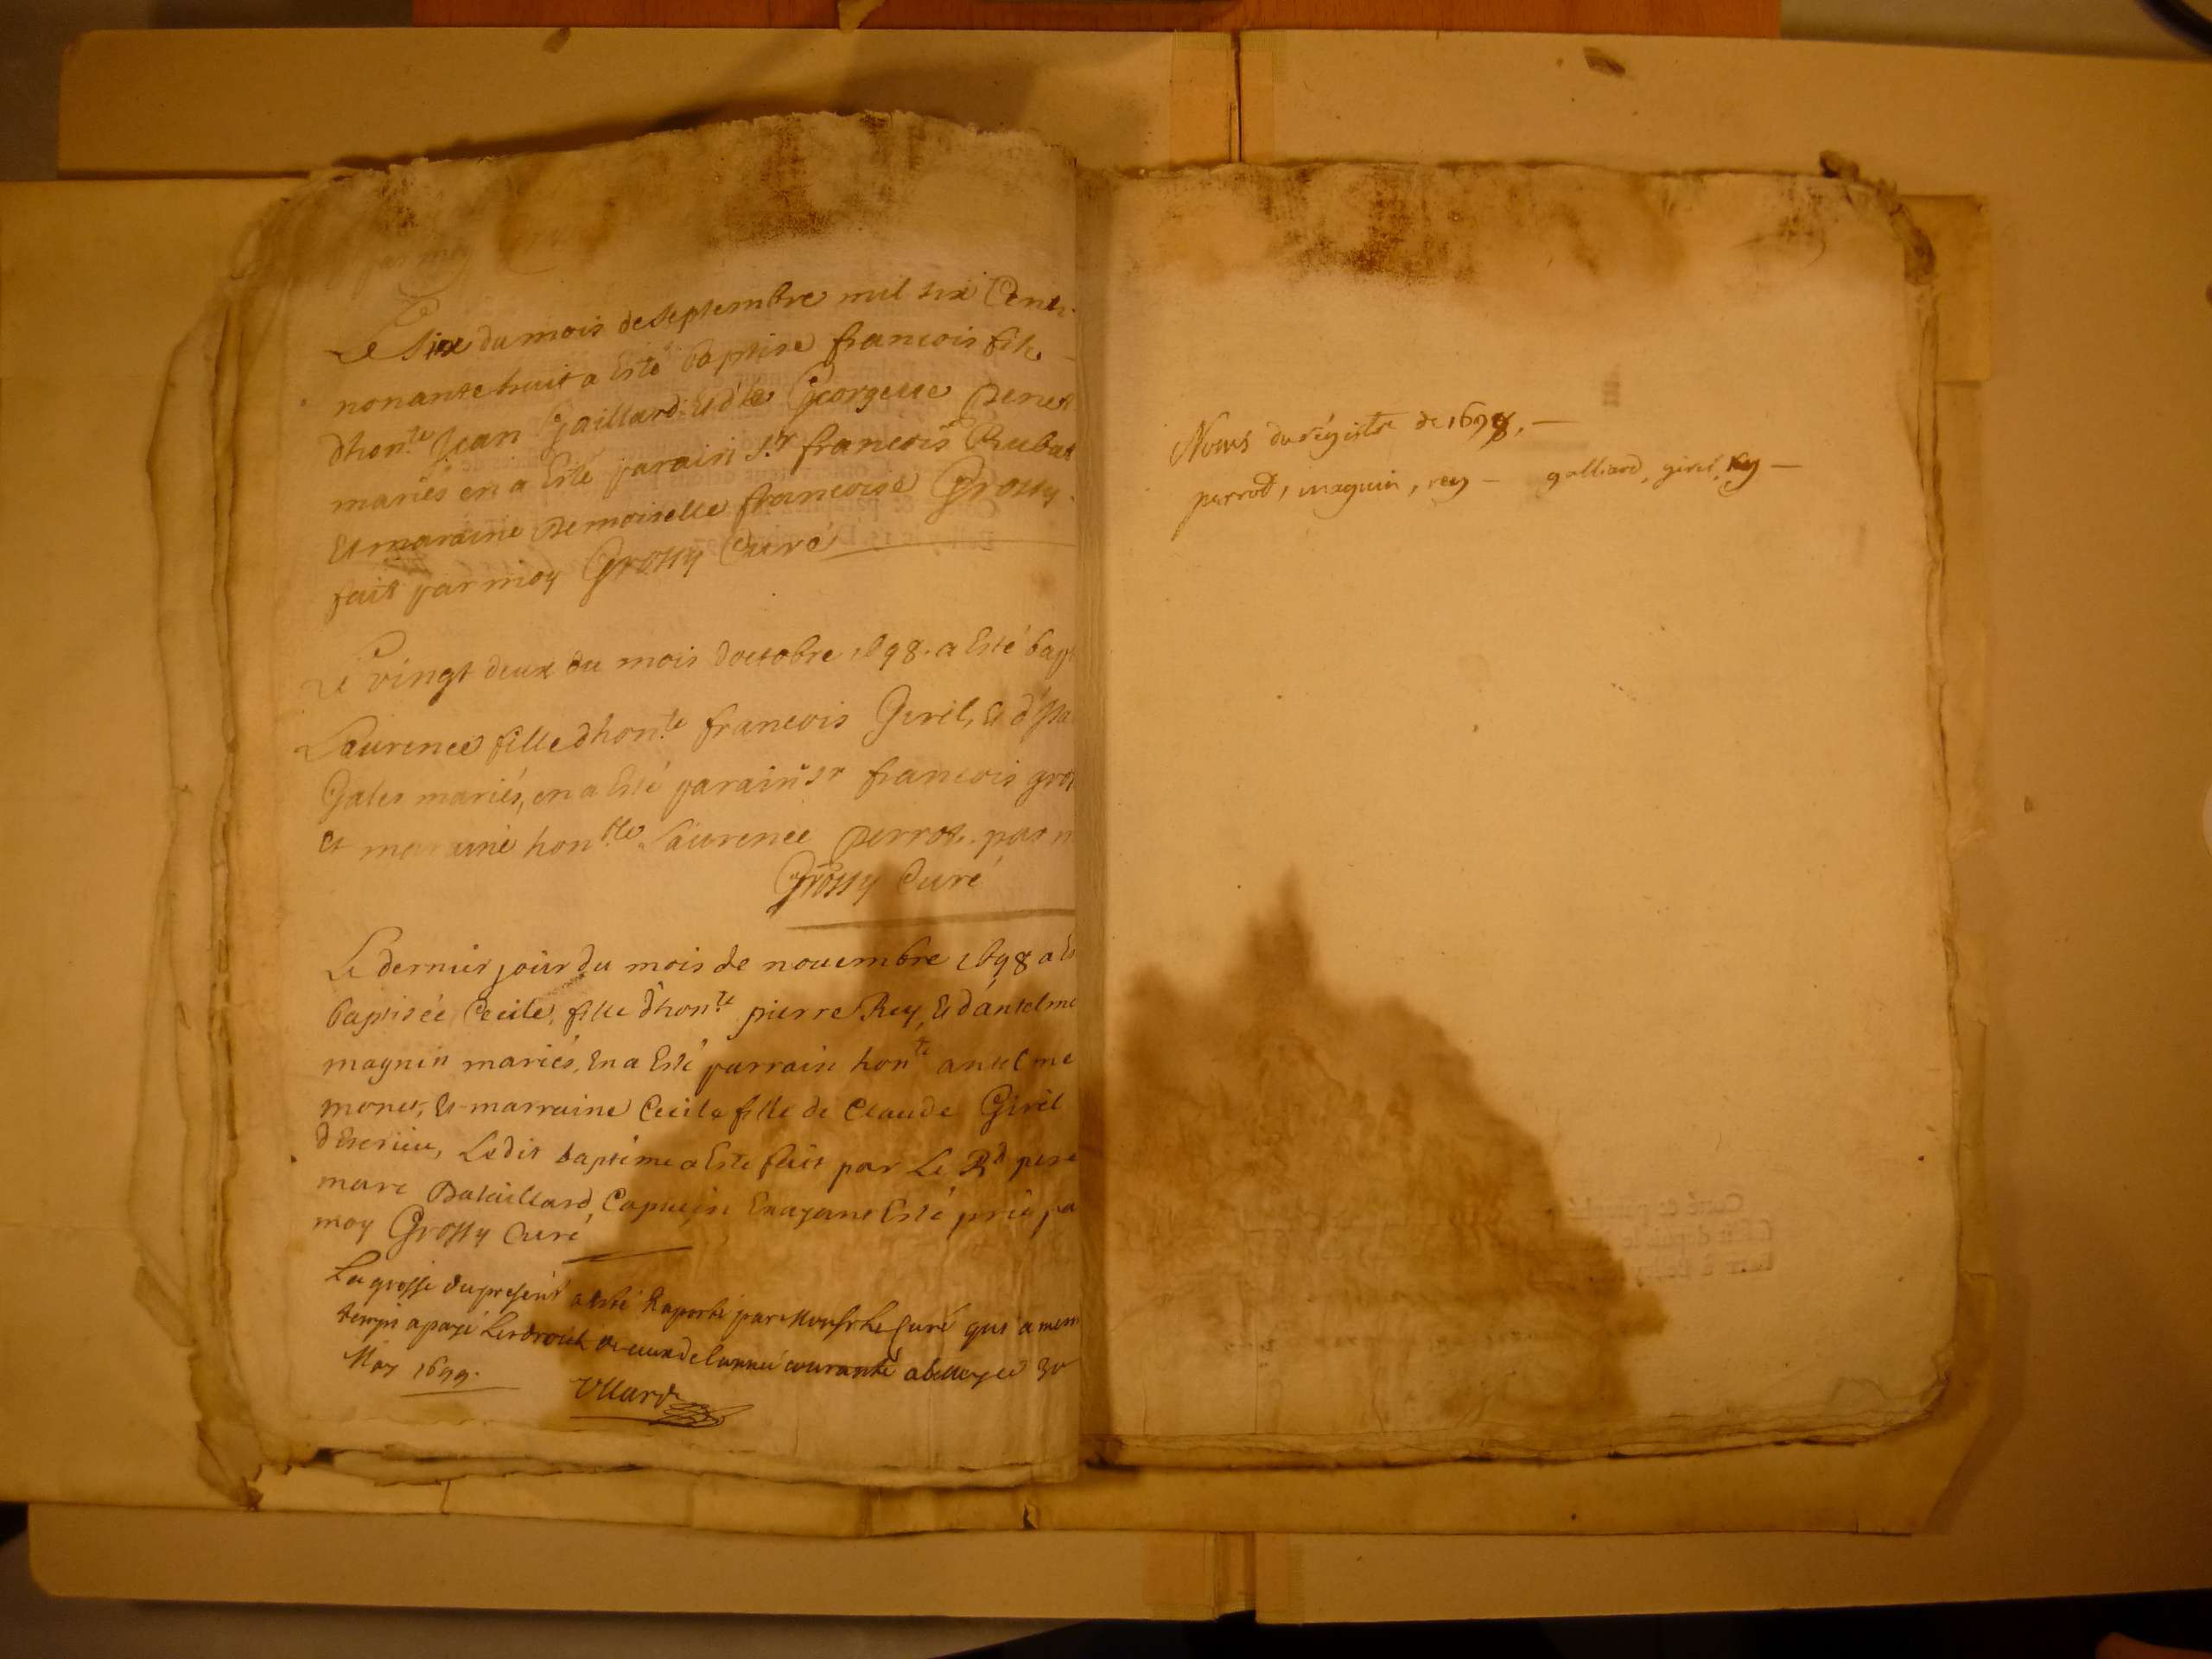 par moy
Le Six du mois de septembre mil six Cent
nonante huit a esté baptisé francois fils
dhon.te Jean Gaillard et d'lle Georgette Perret
mariés en a esté parain S.r francois Rubat
et maraine Demoiselle francoise Grossy
fait par moy Grossy Curé
Le vingt deux du mois doctobre 1698. a esté bapt
Laurence fille dhon.te francois Giril, et d'
Gales mariés, en a esté parain sr francois gros
et maraine hon.ble Laurence perrot. par m
Grossy Curé
Le dernier jour du mois de novembre 1698 a es
baptisée Cecile, fille dhon.te pierre Rey, et d'antelme
magnin mariés, en a esté parrain hon.te antelme
monet, et marraine Cecile fille de Claude Giril
Ledit baptéme a esté fait par Le Rd pere
marc Bataillard, Capucin en ayant esté prié pa
moy Grossy Curé
La grosse du present a esté Raporté par Monsr le Curé qui a mem
temps a payé les droits de de lannée courante a belley ce 30
May 1699.
Vllard
Noms du régistre de 1698, —
perrod, maguin, rey — galliard, giril, Rey —